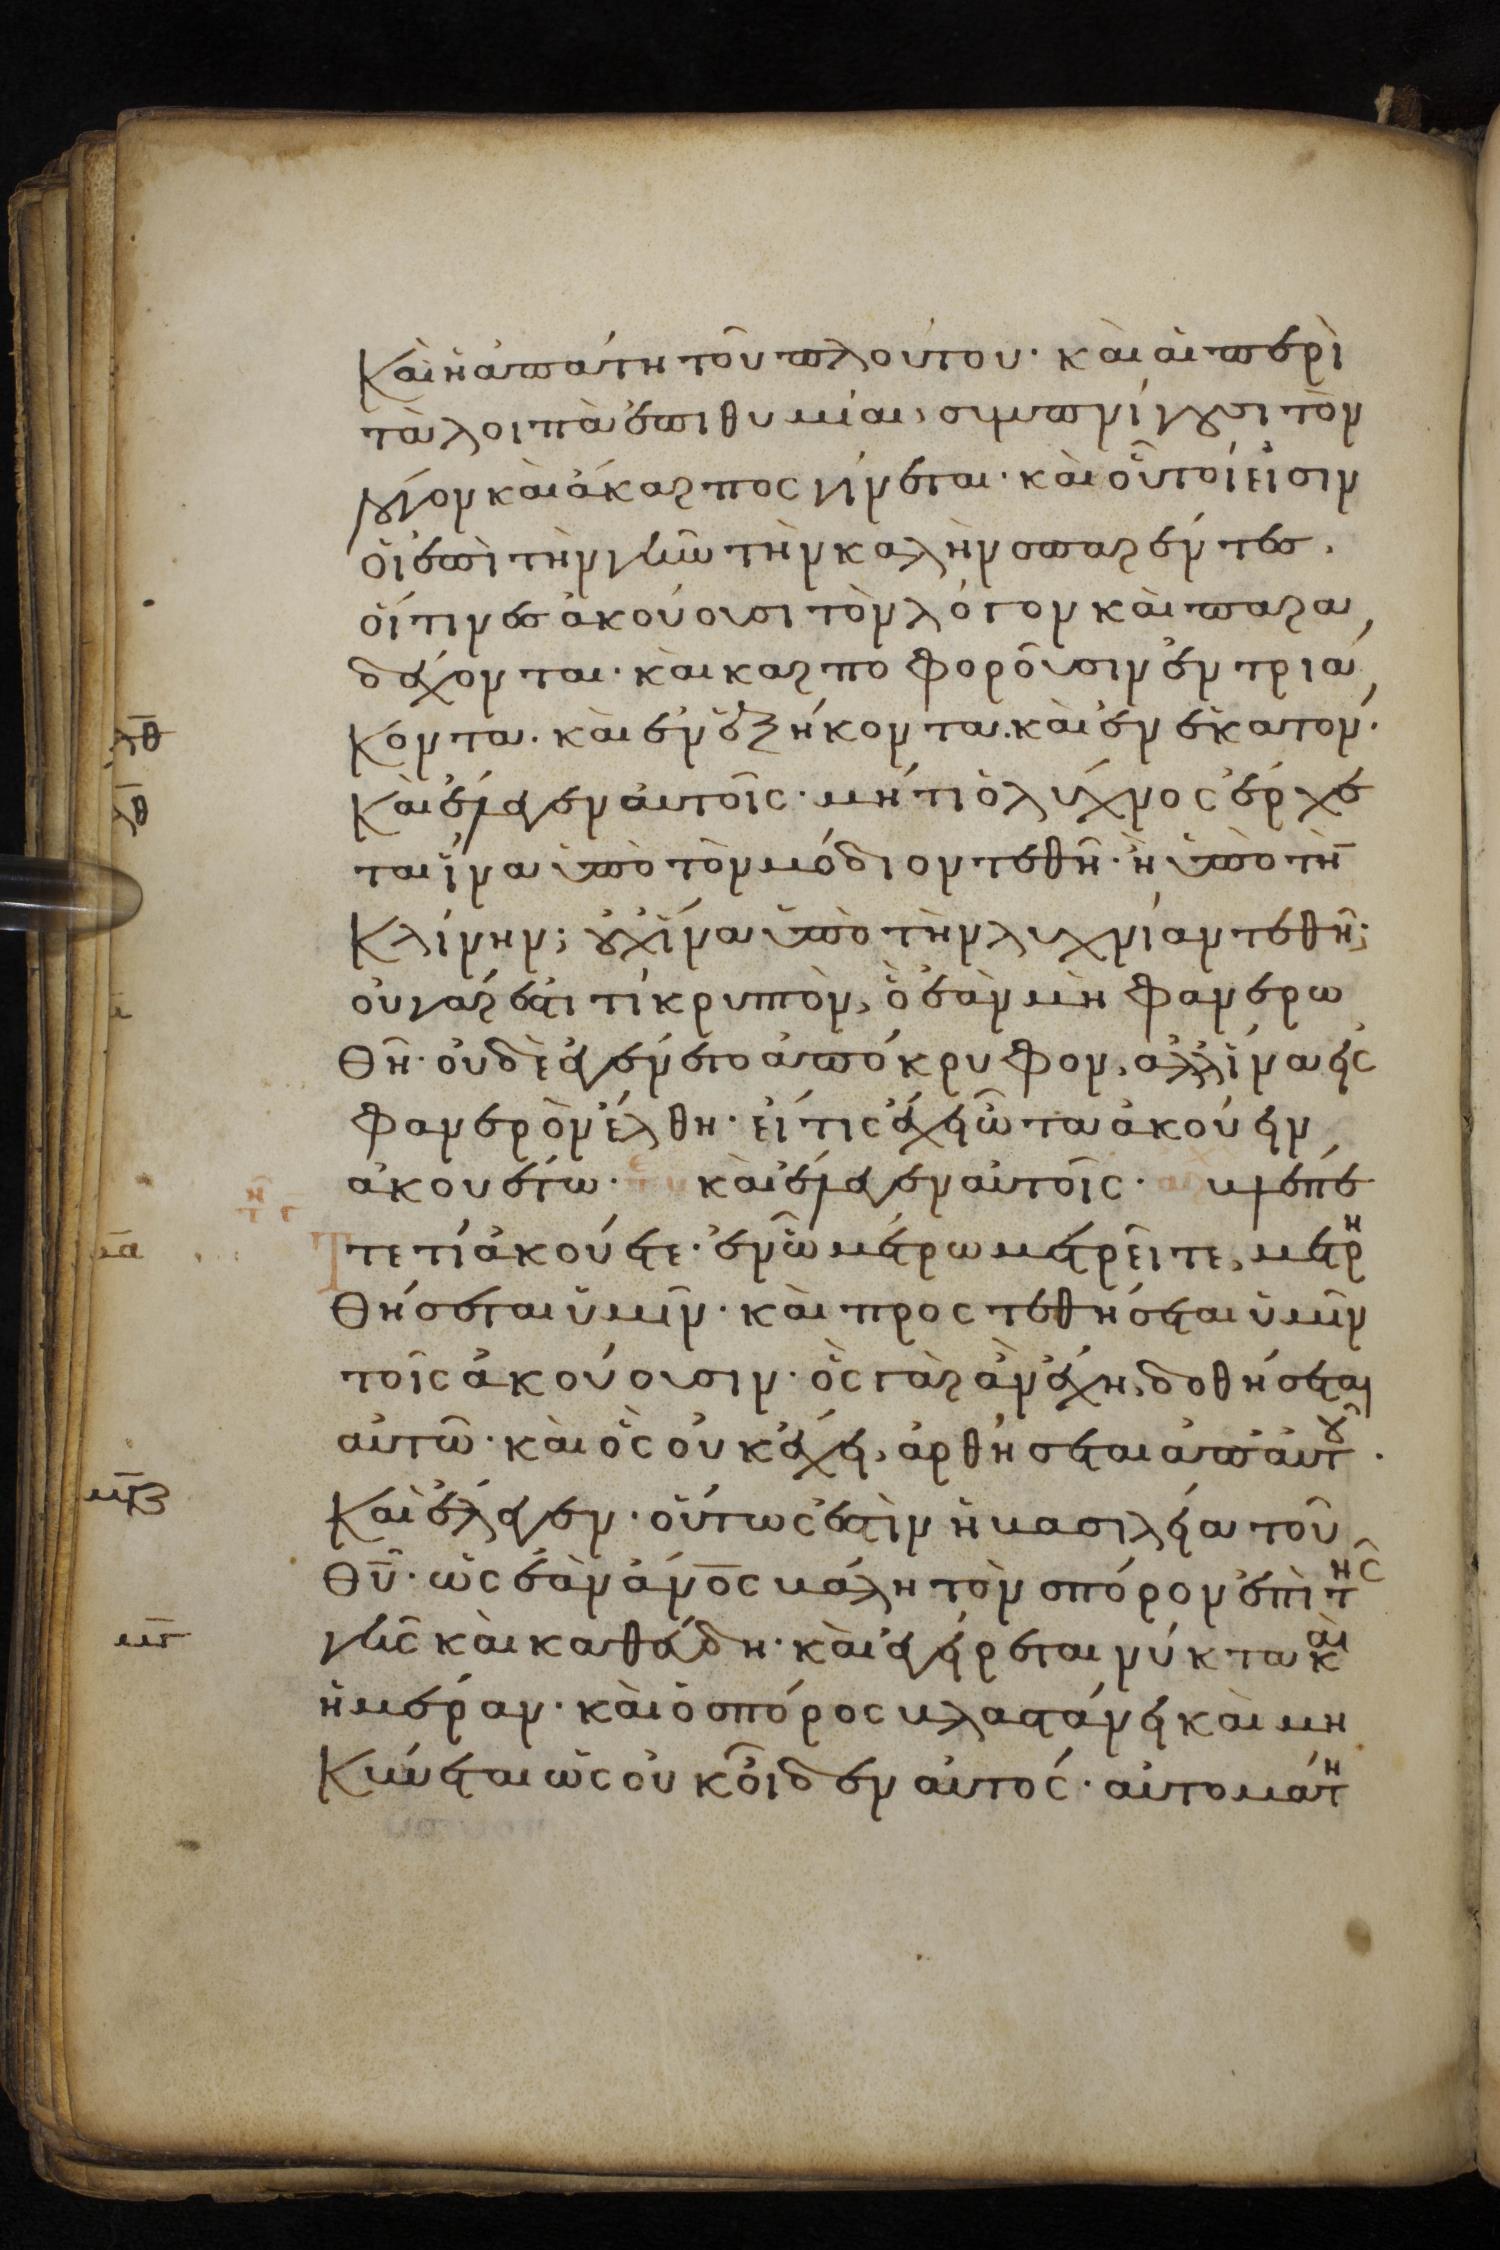 καὶ ἡ ἀπάτη τοῦ πλούτου· καὶ αἱ περὶ
τὰ λοιπὰ ἐπιθυμίαι, συμπνίγουσι τὸν
λόγον καὶ ἄκαρπος γίνεται· καὶ οὗτοί εἰσιν
οἱ ἐπὶ τὴν γῆν τὴν καλὴν σπαρέντες.
οἵτινες ἀκούουσι τὸν λόγον καὶ παρα
δέχονται· καὶ καρποφοροῦσιν ἐν τριά
κοντα. καὶ ἐν ἑξήκοντα. καὶ ἐν ἑκατον.
λθ
καὶ ἔλεγεν αὐτοῖς· μήτι ὁ λύχνος ἔρχε
λθ
ται ἵνα ὑπὸ τὸν μόδιον τεθῆ· ἢ ὑπὸ τὴν
κλίνην; οὐχ ἵνα ὑπὸ τὴν λυχνίαν τεθῆ;
οὐ γάρ ἐστι τί κρυπτὸν, ὃ ἐὰν μὴ φανερω
θῆ· οὐδὲ ἐγένετο ἀπόκρυφον, ἀλλ' ἵνα εἰς
φανερὸν ἔλθη· εἴ τις ἔχει ὦτα ἀκούειν
ἀκουέτω· καὶ ἔλεγεν αὐτοῖς· βλέπε
μα
τε τί ἀκούετε· ἐν ὧ μέτρω μετρεῖτε, μετρη
θήσεται ὑμῖν· καὶ προστεθήσεται ὑμῖν
τοῖς ἀκούουσιν· ὃς γὰρ ἂν ἔχη, δοθήσεται
αὐτῶ· καὶ ὃς οὐκ ἔχει, ἀρθήσεται ἀπ' αὐτοῦ.
μβ
καὶ ἔλεγεν· οὕτως ἐστὶν ἡ βασιλεία τοῦ
θυ· ὡς ἐὰν ἄνος βάλη τὸν σπόρον ἐπὶ τῆς
μγ
γῆς καὶ καθεύδη· καὶ ἐγείρεται νύκτα καὶ
ἡμέραν· καὶ ὁ σπόρος βλαστάνει καὶ μη
κύνεται ὡς οὐκ οἶδεν αὐτός· αὐτομάτη